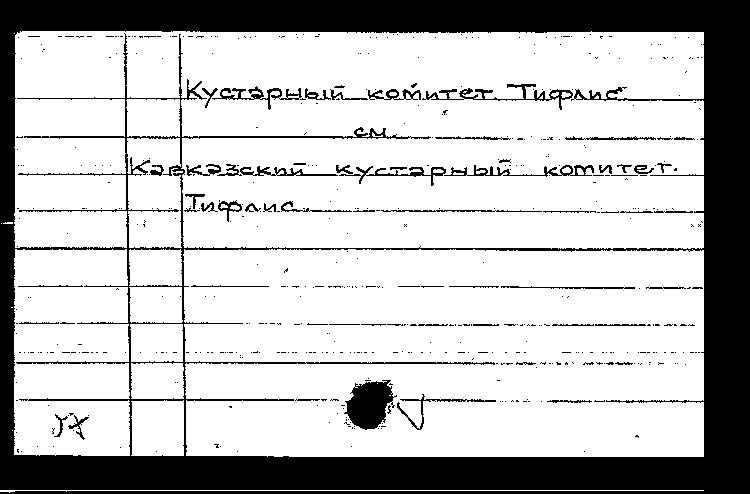 Кустарный комитет. Тифлис.
см.
Кавказский кустарный комитет.
Тифлис.